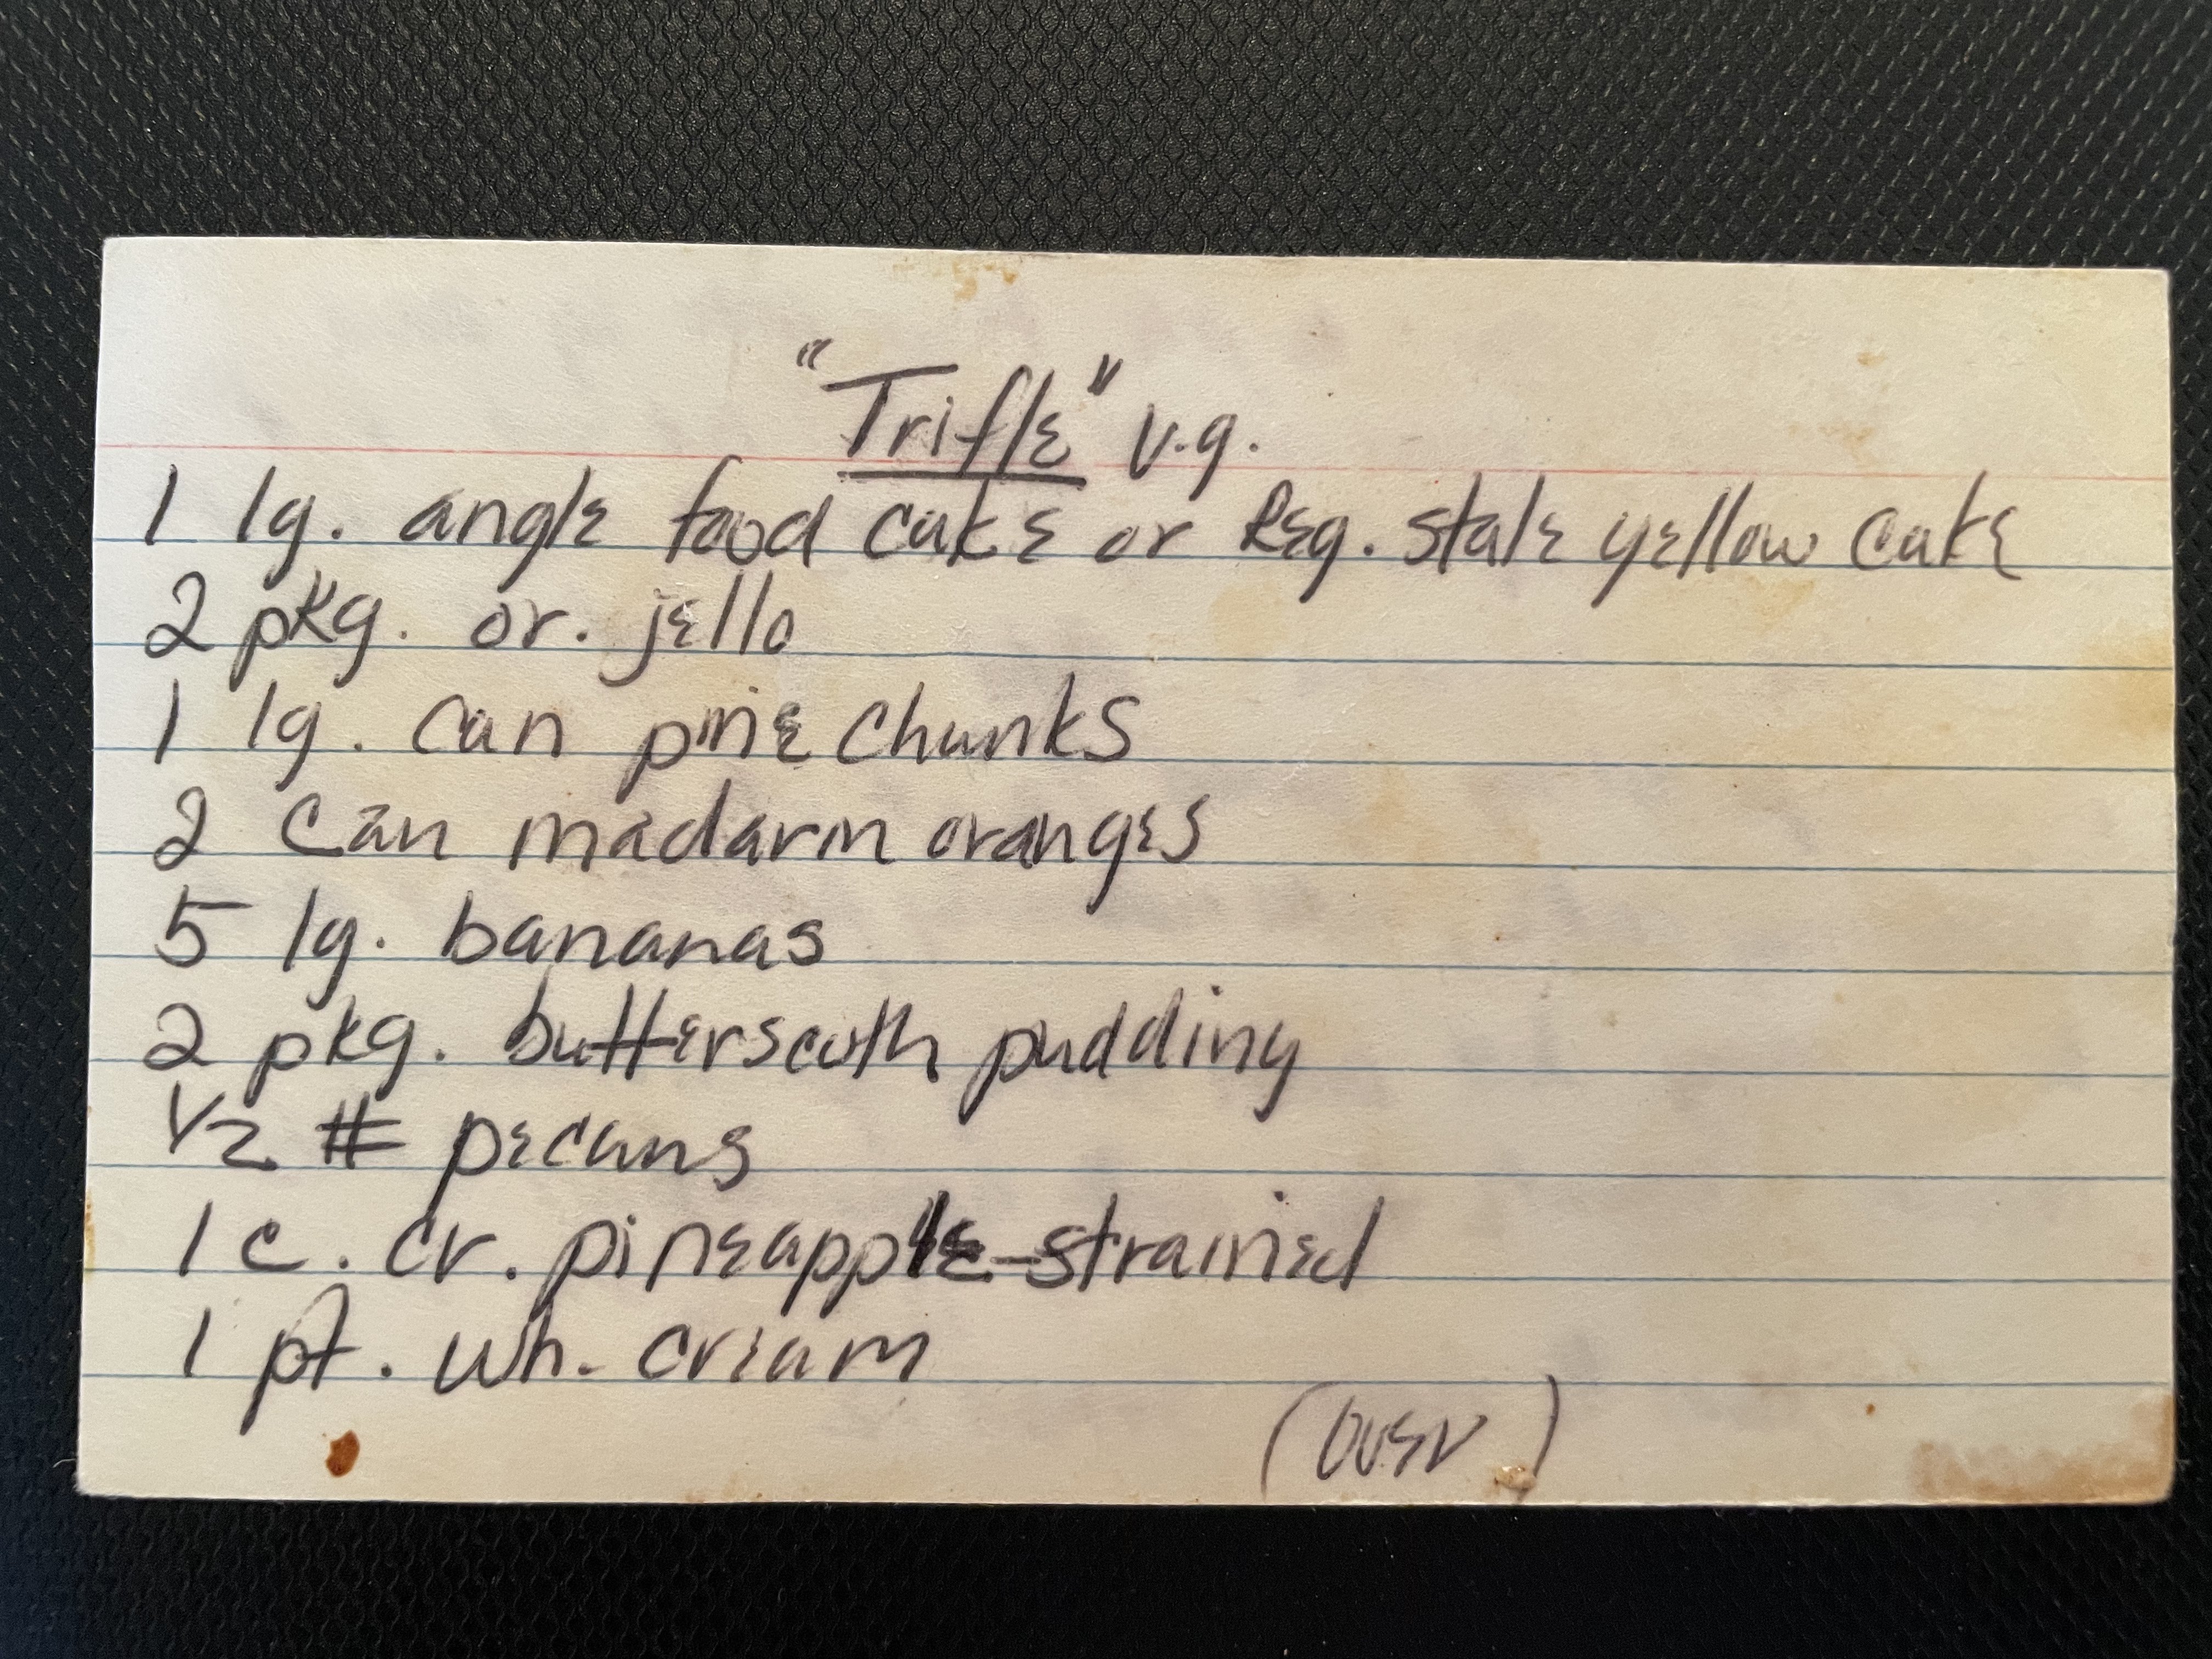 "Trifle" v.g.
1 lg. angle food cake or Reg. stale yellow cake
2 pkg. or. jello
1 lg. can pine chunks
2 can madarin oranges
5 lg. bananas
2 pkg. butterscoth pudding
1/2 # pecans
1 c. cr. pineapple-strained
1 pt. wh. cream
(over)